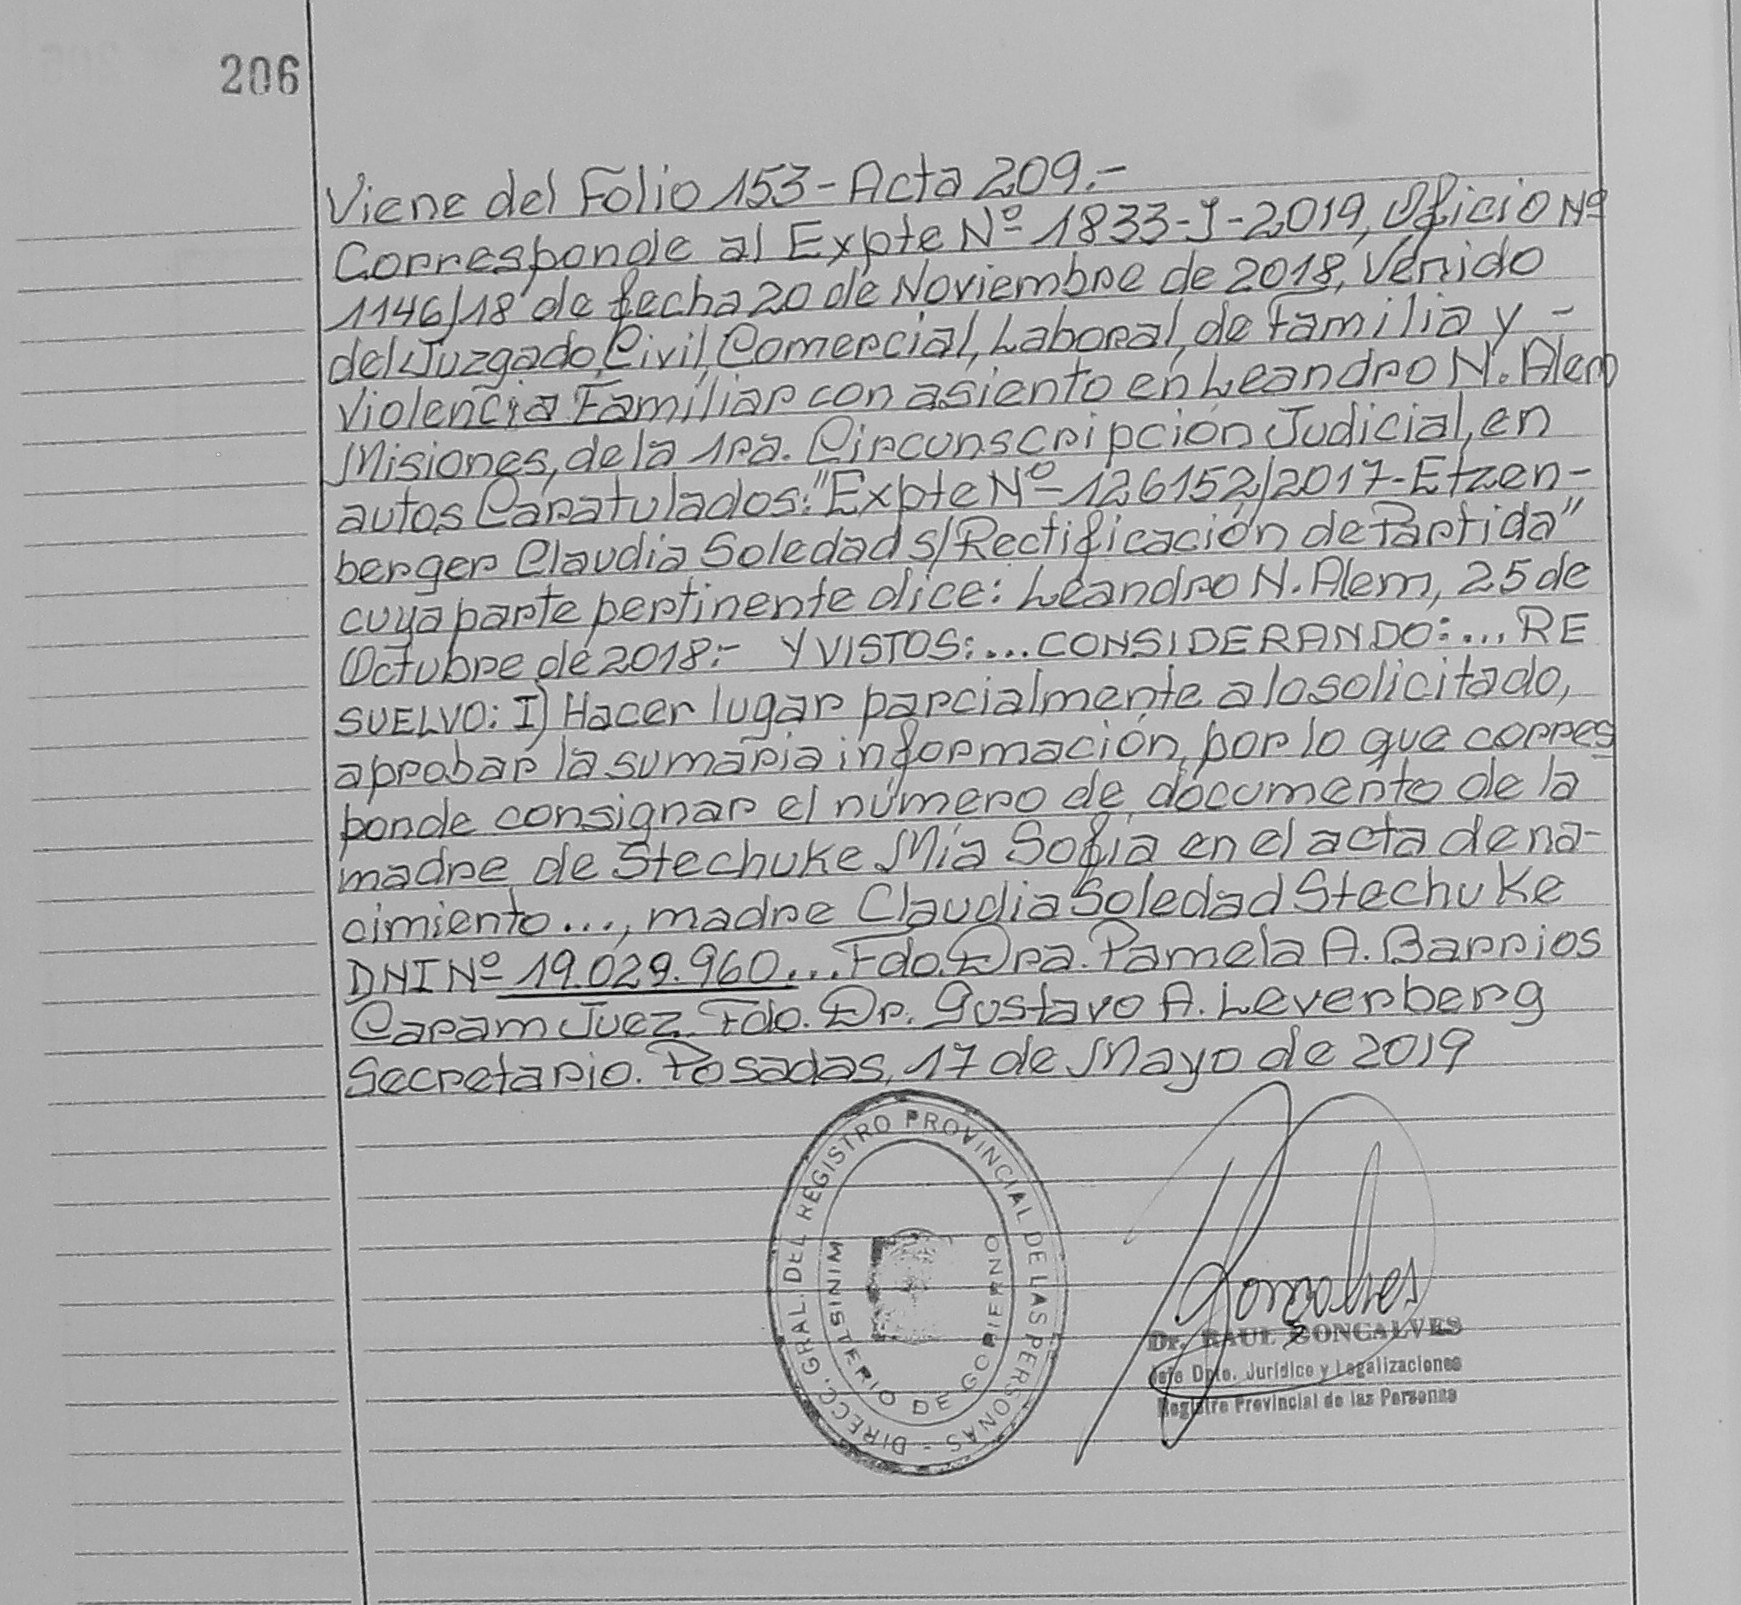 206
Viene del Folio 153-Acta 209.-
Corresponde al Expte Nº 1833-J-2019, Oficio Nº
1146/18 de fecha 20 de Noviembre de 2018, Venido
del Juzgado Civil, Comercial, Laboral, de Familia y -
Violencia Familiar con asiento en Leandro N. Alem
Misiones, de la 1ra. Circunscripción Judicial, en
autos Caratulados: "Expte Nº 126152/2017-Etzen-
berger Claudia Soledad s/Rectificación de Partida"
cuya parte pertinente dice: Leandro N. Alem, 25 de
Octubre de 2018:- Y VISTOS:... CONSIDERANDO:... RE
SUELVO: I) Hacer lugar parcialmente a lo solicitado,
aprobar la sumaria información, por lo que corres
ponde consignar el número de documento de la
madre de Stechuke Mía Sofía en el acta de na-
cimiento..., madre Claudia Soledad Stechuke
DNI Nº 19.029.960... Fdo. Dra. Pamela A. Barrios
Caram Juez. Fdo. Dr. Gustavo A. Leverberg
Secretario. Posadas, 17 de Mayo de 2019
DIRECC. GRAL. DEL REGISTRO PROVINCIAL DE LAS PERSONAS -
MINISTERIO DE GOBIERNO
Goncalves
Dr. RAUL GONCALVES
Jefe Dpto. Jurídico y Legalizaciones
Registro Provincial de las Personas